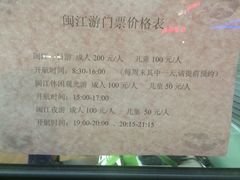 闽江游门票价格表
闽江 游 成人 200 元/人 儿童 100 元/人
开航时间：8:30-16:00 （每周末其中一天,请提前预约）
闽江休闲观光游 成人 100 元/人 儿童 50 元/人
开航时间：15:00-17:00
闽江夜游 成人 100 元/人 儿童 50 元/人
开航时间：19:00-20:00 、20:15-21:15